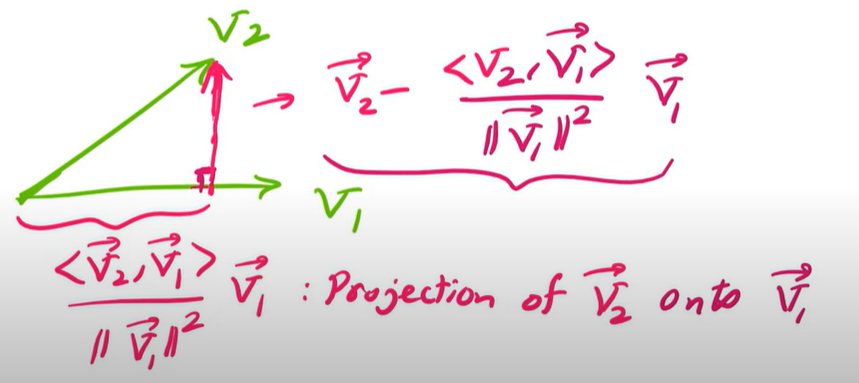 V2
→ V⃗₂ - <V₂, V⃗₁> / ‖V⃗₁‖² V⃗₁
V₁
<V⃗₂, V⃗₁> / ‖V⃗₁‖² V⃗₁ : Projection of V⃗₂ onto V⃗₁